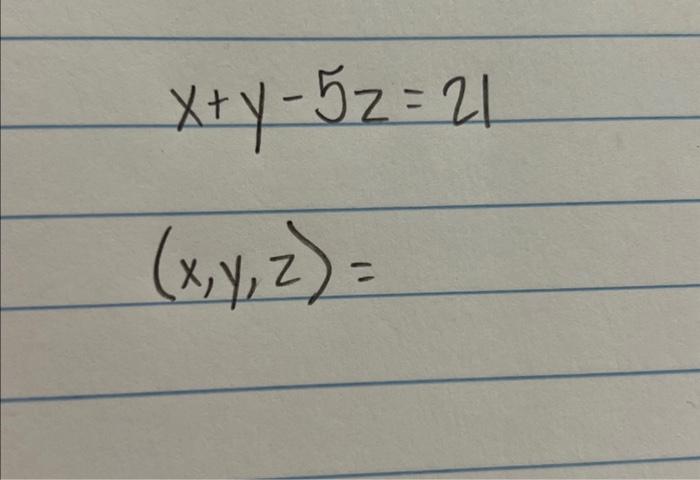 x+y-5z=21
(x,y,z)=